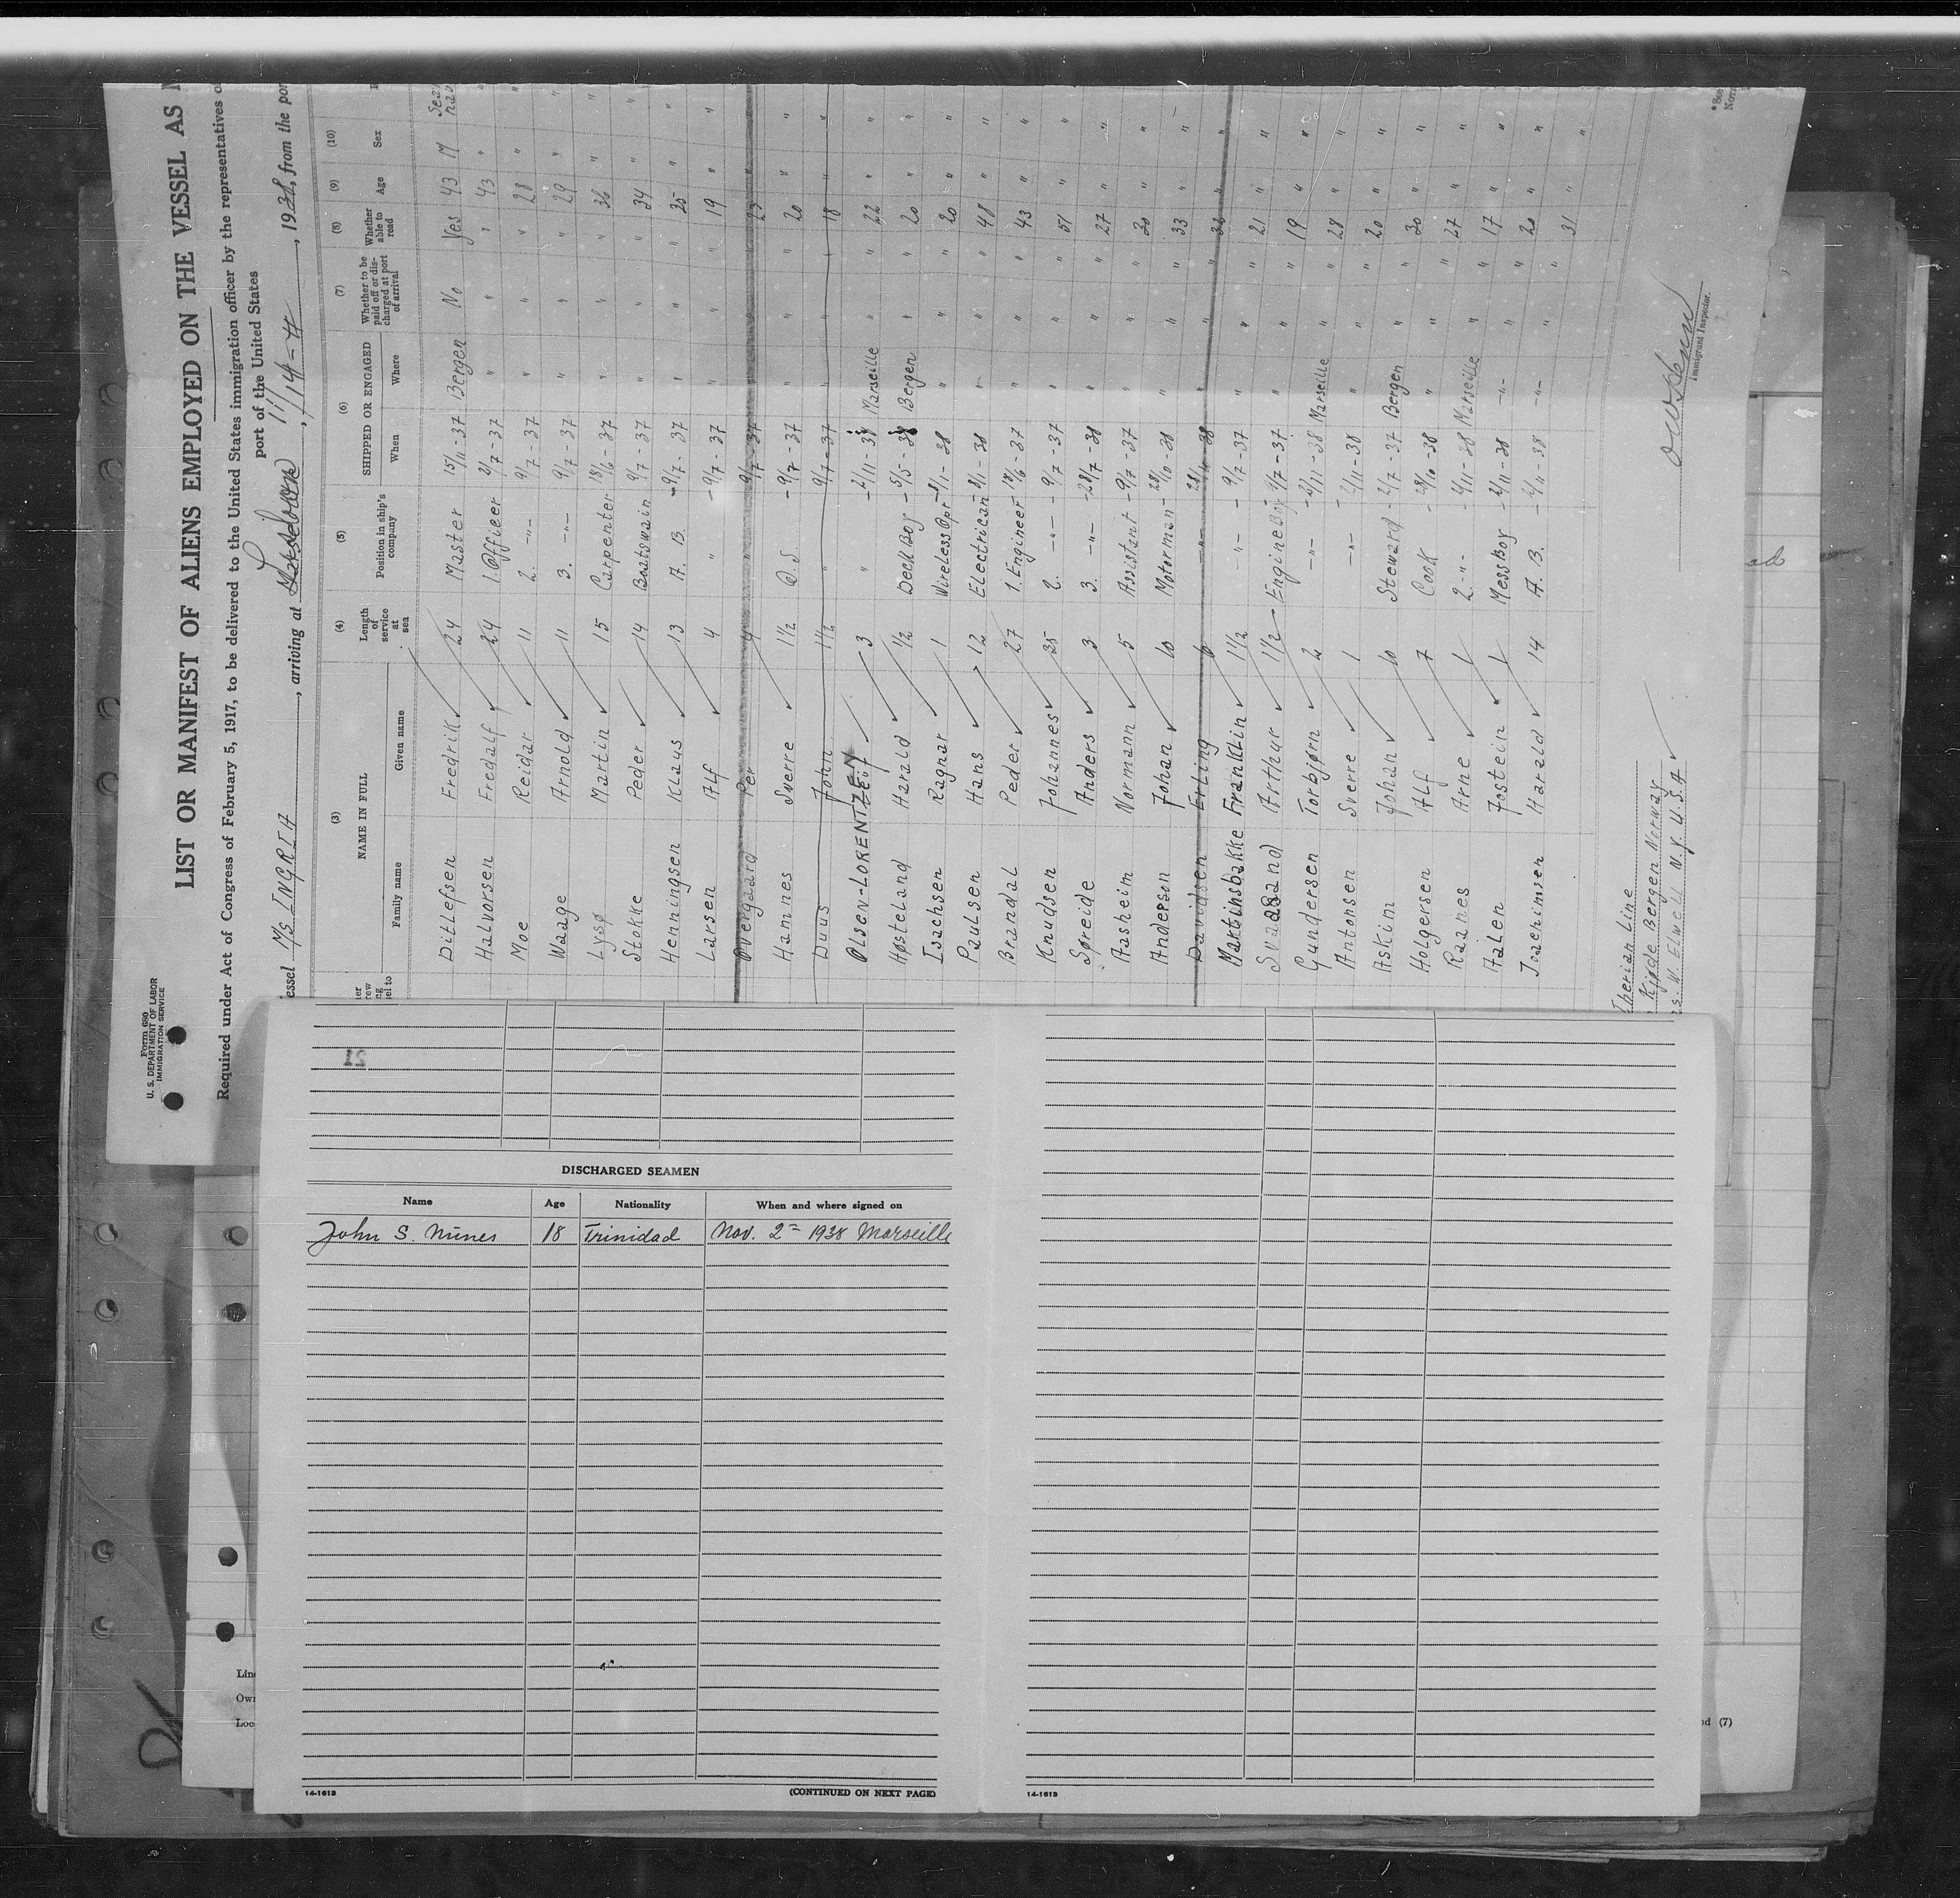 Form 680
U. S. DEPARTMENT OF LABOR
IMMIGRATION SERVICE
LIST OR MANIFEST OF ALIENS EMPLOYED ON THE VESSEL AS
Required under Act of Congress of February 5, 1917, to be delivered to the United States immigration officer by the representatives
port of the United States
essel M/s INGRIA, arriving at 11/14, 1938, from the por
(3) (4) (5) (6) (7) (8) (9) (10)
NAME IN FULL Length of service at sea Position in ship's company SHIPPED OR ENGAGED Whether to be paid off or discharged at port of arrival Whether able to read Age Sex
Family name Given name When Where
Ditlefsen Fredrik 24 Master 15/11-37 Bergen No Yes 43 M
Halvorsen Fredalf 24 1. Officer 3/7-37 " " " 43 "
Moe Reidar 11 2. -"- 9/7-37 " " " 28 "
Waage Arnold 11 3. -"- 9/7-37 " " " 29 "
Lysø Martin 15 Carpenter 18/6-37 " " " 36 "
Stokke Peder 14 Boatswain 9/7-37 " " " 34 "
Henningsen Klaus 13 A. B. 9/7-37 " " " 30 "
Larsen Alf 4 " 9/7-37 " " " 19 "
Overgaard Per 4 9/7-37 23 "
Hamnes Sverre 1½ O.S 9/7-37 " " " 20 "
Duus John 1½ " 9/7-37 " " " 18 "
OLSEN-LORENTZEN 3 " 2/11-38 Marseille " " 22 "
Høsteland Harald ½ Deck Boy 5/5-38 Bergen " " 20 "
Isachsen Ragnar 1 Wireless Opr 8/1-38 " " " 20 "
Paulsen Hans 12 Electrician 8/1-38 " " " 48 "
Brandal Peder 27 1. Engineer 18/6-37 " " " 43 "
Knudsen Johannes 25 2. -"- 9/7-37 " " " 51 "
Søreide Anders 3 3. -"- 28/7-38 " " " 27 "
Aasheim Normann 5 Assistant 9/7-37 " " " 30 "
Anderson Johan 10 Motorman 28/10-38 " " " 33 "
Davidsen Erling 6 -"- "
Martinsbakke Franklin 1½ -"- 9/7-37 " " " 21 "
Svaasand Arthur 1½ Engine Boy 9/7-37 " " " 19 "
Gundersen Torbjørn 2 -"- 2/11-38 Marseille " " 28 "
Antonsen Sverre 1 -"- 2/11-38 " " " 20 "
Askim Johan 10 Steward 2/7-37 Bergen " " 30 "
Holgersen Alf 7 Cook 28/10-38 " " " 27 "
Raanes Arne 1 2. -"- 2/11-38 Marseille " " 17 "
Aalen Jostein 1 Mess Boy 2/11-38 -"- " " 20 "
Joachimsen Harald 14 A. B. 2/11-38 -"- " " 31 "
Iberian Line
Kjøde Bergen Norway
s. W. Elwell N.Y. U.S.A
Immigrant Inspector.
21
DISCHARGED SEAMEN
Name Age Nationality When and where signed on
John S. Nunes 18 Trinidad Nov. 2= 1938 Marseille
14-1613 (CONTINUED ON NEXT PAGE)
14-1613
Line
Own
Loc
nd (7)
ad